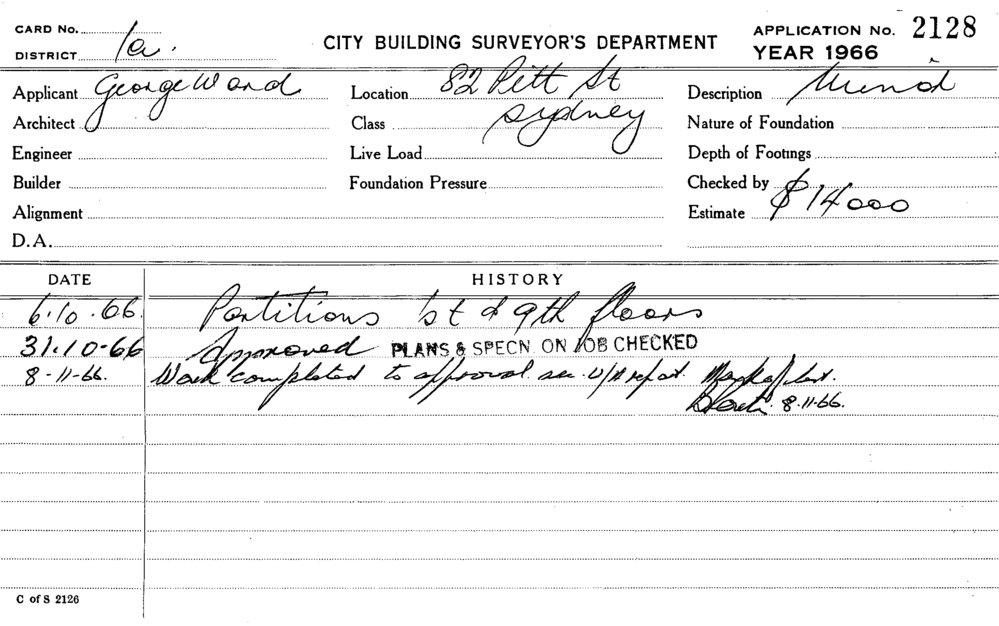 CARD No.
DISTRICT 1a.
CITY BUILDING SURVEYOR'S DEPARTMENT
APPLICATION No. 2128
YEAR 1966
Applicant George Ward
Location 82 Pitt St
Sydney
Description Minor
Architect
Class
Nature of Foundation
Engineer
Live Load
Depth of Footings
Builder
Foundation Pressure
Checked by
Alignment
Estimate $14000
D.A.
DATE HISTORY
6.10.66. Partitions 1st & 9th floors
31.10-66 Approved PLANS & SPECN. ON JOB CHECKED
8-11-66. Work completed to approval see
8.11.66.
C of S 2126